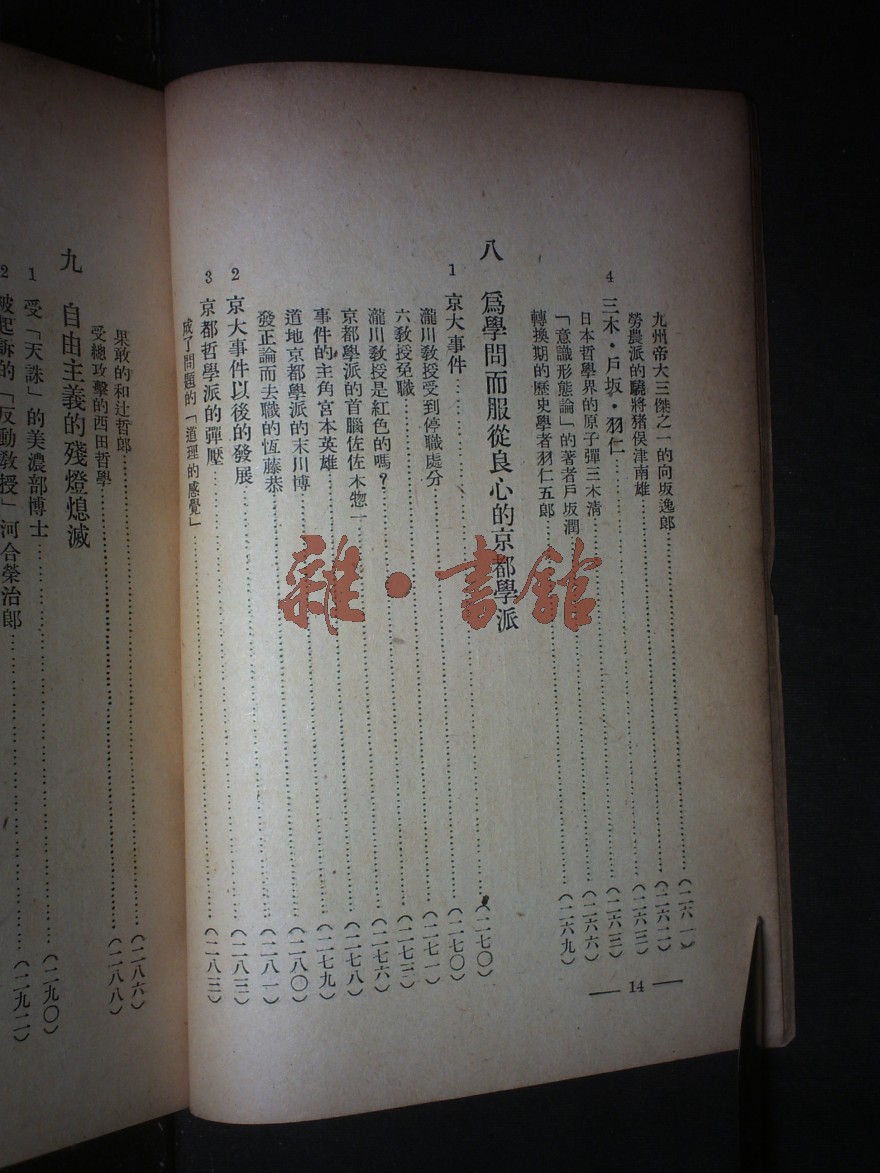 九州帝大三傑之一的向坂逸郎……(二六一)
勞農派的驍將猪俣津南雄……(二六二)
4 三木・戶坂・羽仁……(二六三)
日本哲學界的原子彈三木清……(二六三)
「意識形態論」的著者戶坂潤……(二六六)
轉換期的歷史學者羽仁五郎……(二六九)
八 爲學問而服從良心的京都學派
1 京大事件……(二七〇)
瀧川教授受到停職處分……(二七〇)
六教授免職……(二七一)
瀧川教授是紅色的嗎?……(二七三)
京都學派的首腦佐佐木惣一……(二七六)
事件的主角宮本英雄……(二七八)
道地京都學派的末川博……(二七九)
發正論而去職的恆藤恭……(二八〇)
2 京大事件以後的發展……(二八一)
3 京都哲學派的彈壓……(二八三)
成了問題的「道理的感覺」……(二八三)
— 14 —
果敢的和辻哲郎……(二八六)
受總攻擊的西田哲學……(二八八)
九 自由主義的殘燈熄滅
1 受「天誅」的美濃部博士……(二九〇)
2 被起訴的「反動教授」河合榮治郎……(二九二)
雜・書館